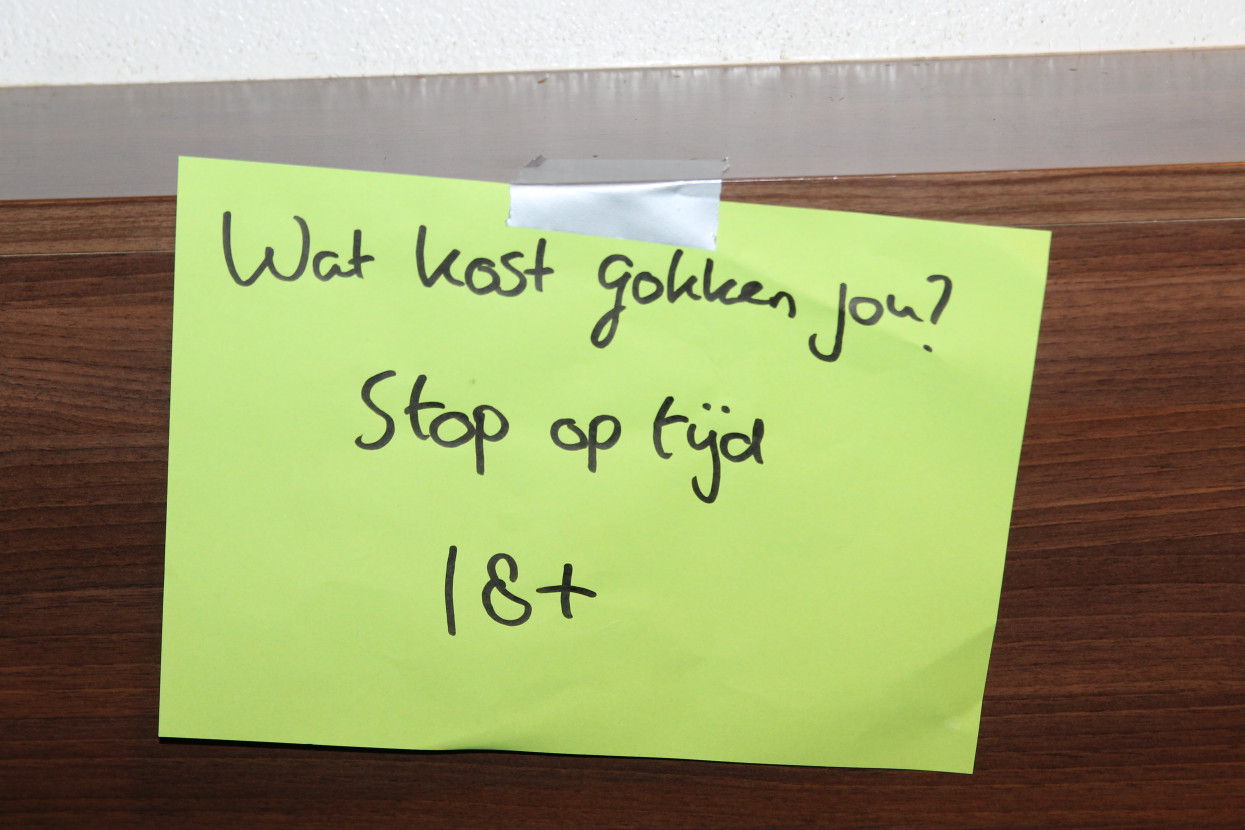 Wat kost gokken jou?
Stop op tijd
18+